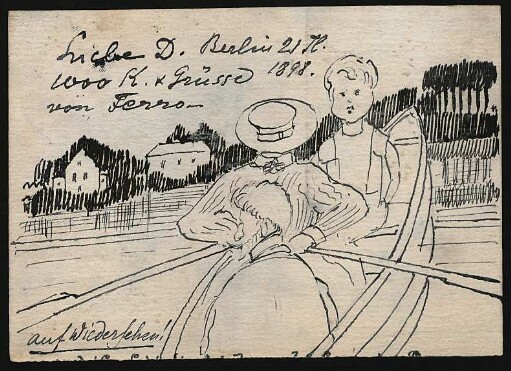 Liebe D. Berlin 21 II.
1000 K. x Grüsse 1898.
von Ferro
auf Wiedersehen!